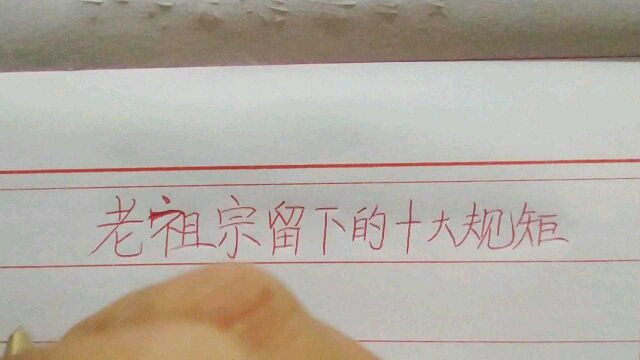 老祖宗留下的十大规矩